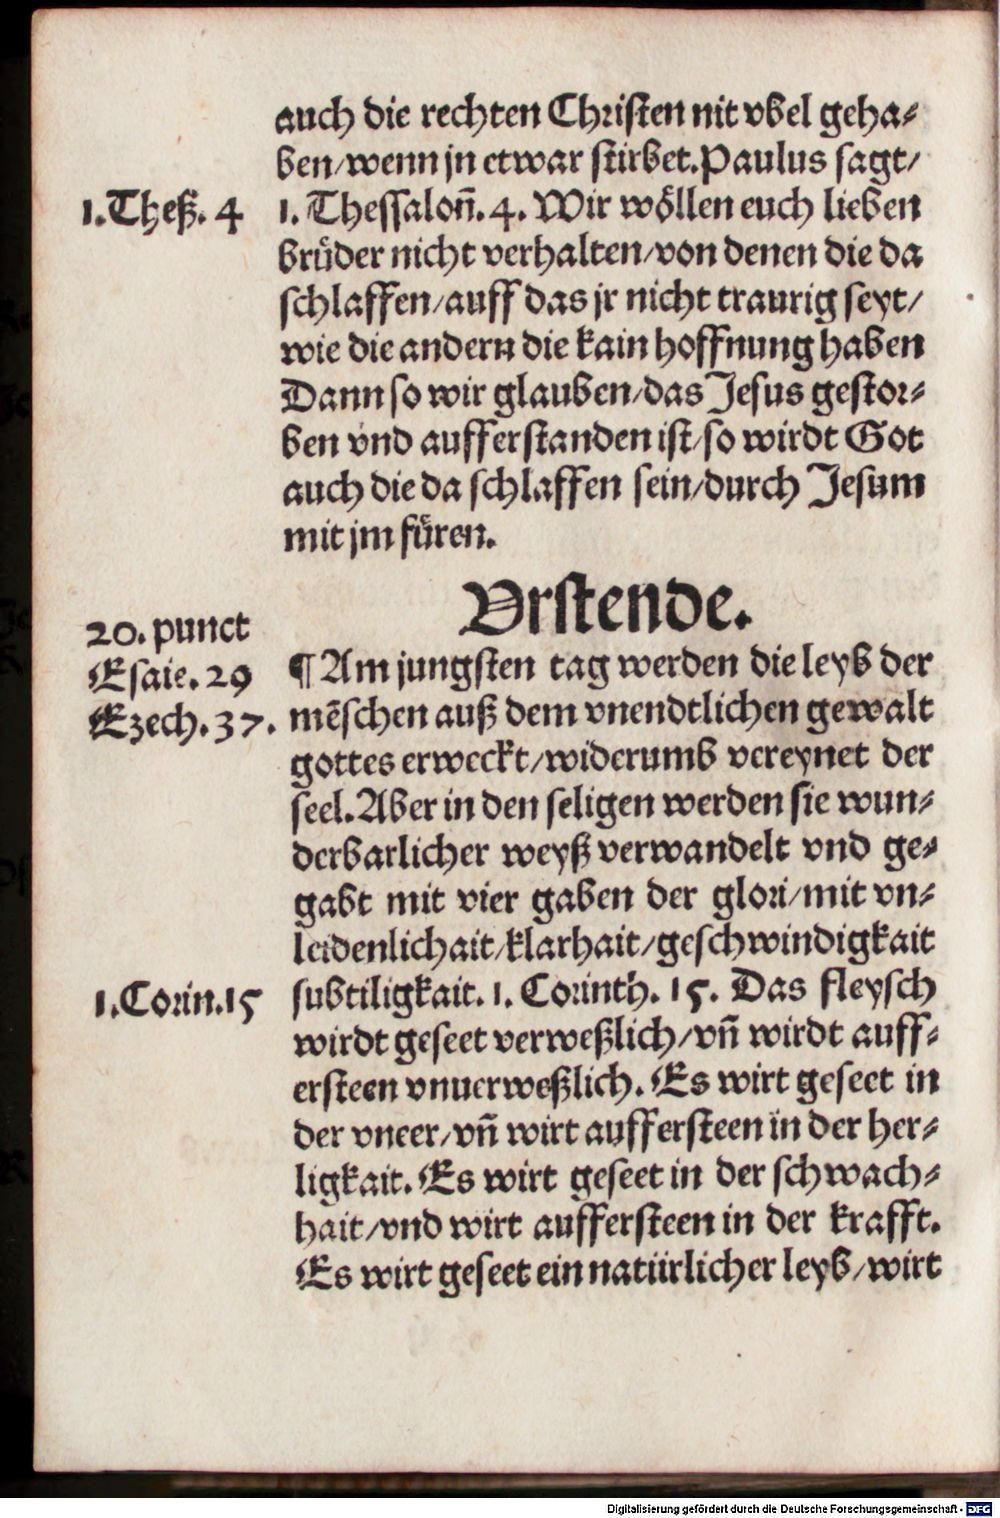 auch die rechten Christen nit vbel geha⸗
ben/wenn jn etwar stirbet.Paulus sagt/
1.Theß.4
1. Thessaloñ.4. Wir wöllen euch lieben
brüder nicht verhalten/von denen die da
schlaffen/auff das jr nicht traurig seyt/
wie die andern die kain hoffnung haben
Dann so wir glauben/das Jesus gestor⸗
ben vnd aufferstanden ist/so wirdt Got
auch die da schlaffen sein/durch Jesum
mit jm füren.
Vrstende.
20. punct
Esaie. 29
Ezech. 37.
¶ Am jungsten tag werden die leyb der
mẽschen auß dem vnendtlichen gewalt
gottes erweckt/widerumb vereynet der
seel.Aber in den seligen werden sie wun⸗
derbarlicher weyß verwandelt vnd ge⸗
gabt mit vier gaben der glori/mit vn⸗
leidenlichait/klarhait/geschwindigkait
1.Corin.15
subtiligkait. 1. Corinth. 15. Das fleysch
wirdt geseet verweßlich/vñ wirdt auff⸗
ersteen vnuerweßlich. Es wirt geseet in
der vneer/vñ wirt auffersteen in der her⸗
ligkait. Es wirt geseet in der schwach⸗
hait/vnd wirt auffersteen in der krafft.
Es wirt geseet ein natürlicher leyb/wirt
Digitalisierung gefördert durch die Deutsche Forschungsgemeinschaft - DFG